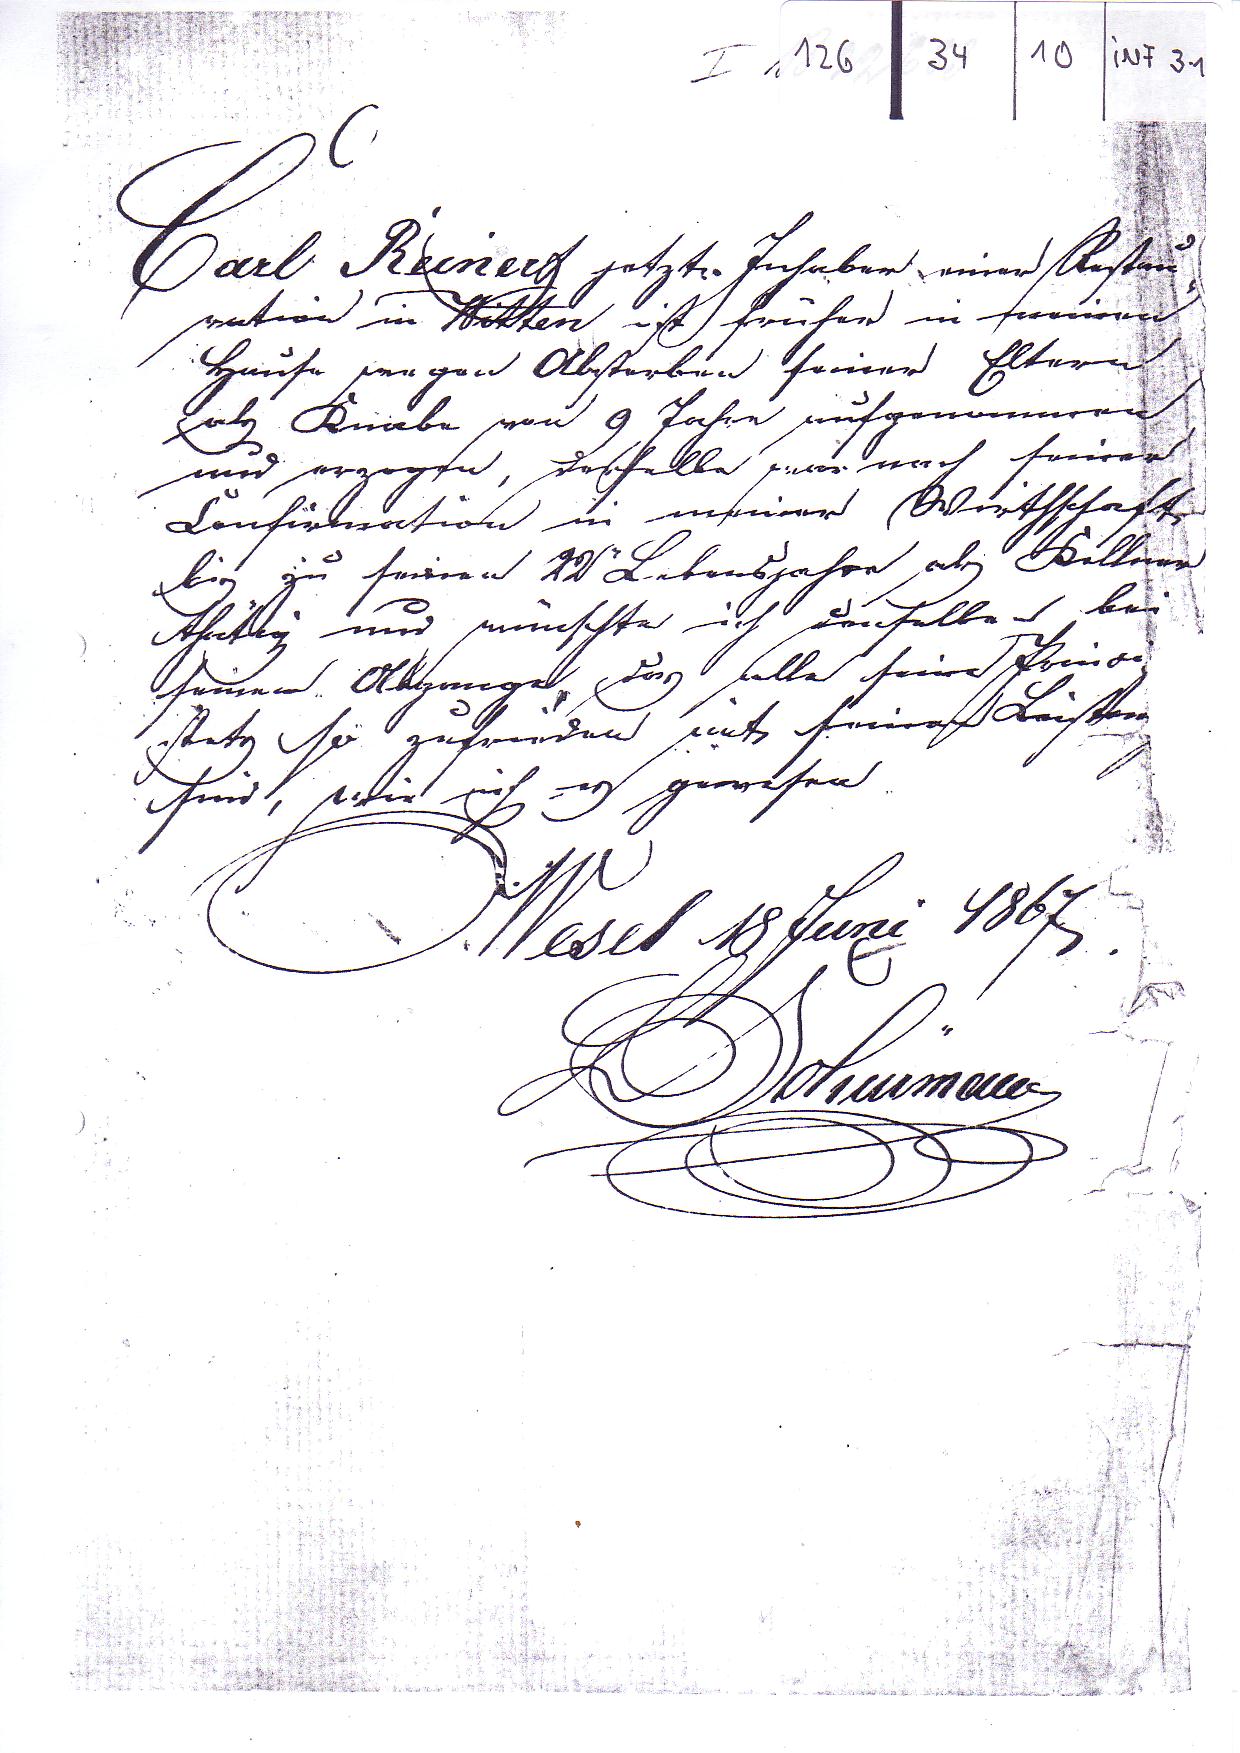 I 126 34 10 INF 3-1
C
Carl Reinery jetzt Inhaber einer Restau
ration in Witten ist früher in meinen
Hause wegen Absterben seiner Eltern
als Knabe von 9 Jahre aufgenommen
und erzogen, derselbe war nach seiner
Confirmation in meiner Wirthschaft
bis zu seinen 22 Lebensjahre als Kellner
thätig und wünschte ich denselben bei
seinem Abgange, das alle seine Princi
stets so zufrieden mit seinen Leistun
sind, wie ich es gewesen
Wesel 18 Juni 1867.
Schürmann